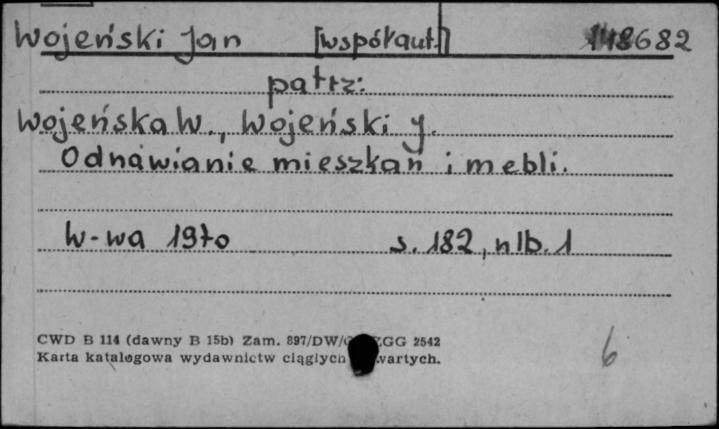 Wojeński Jan [współaut.] 148682
patrz:
Wojeńska W., Wojeński J.
Odnawianie mieszkań i mebli.
W-wa 1970 s. 182, nlb. 1
CWD B 114 (dawny B 15b) Zam. 897/DW/ ZGG 2542
Karta katalogowa wydawnictw ciągłych wartych.
6